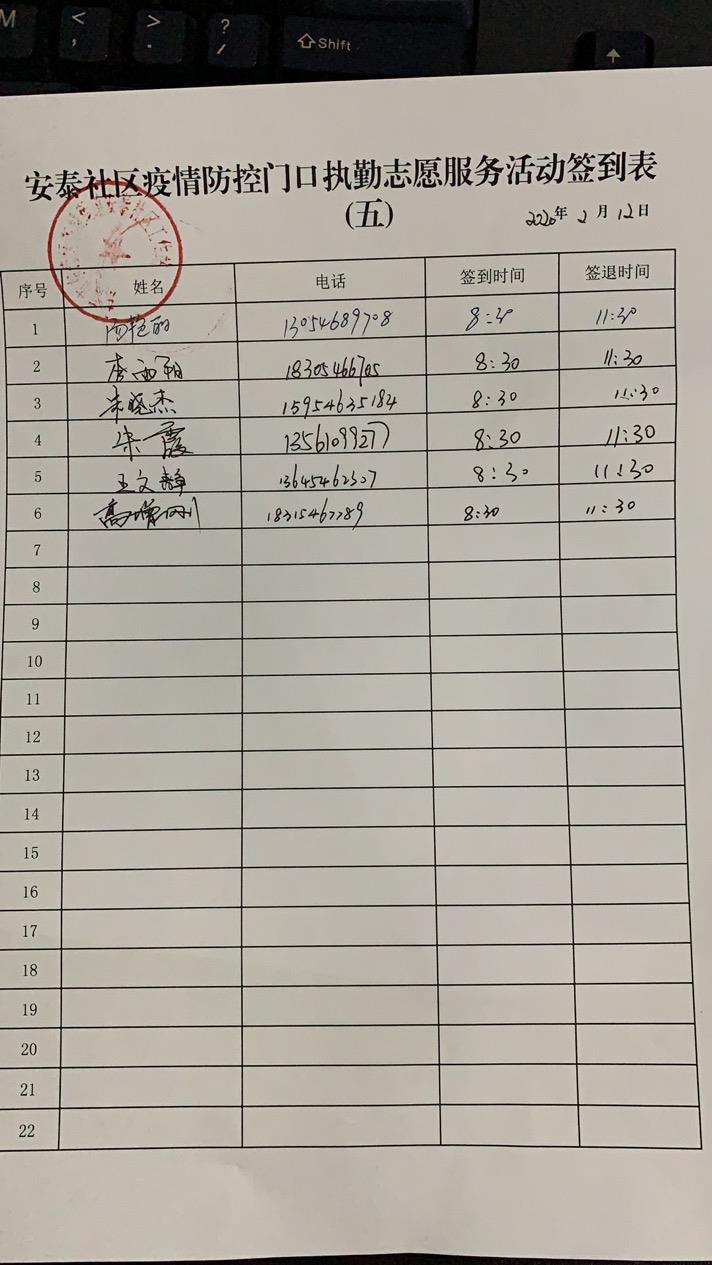 M
<
,
>
.
?
/
Shift
安泰社区疫情防控门口执勤志愿服务活动签到表
(五)
2020年 2 月 12日
序号 姓名 电话 签到时间 签退时间
1 13054689708 8:30 11:30
2 8:30 11:30
3 朱晓杰 15954635184 8:30 11:30
4 朱霞 13561099277 8:30 11:30
5 王文静 13645462307 8:30 11:30
6 8:30 11:30
7
8
9
10
11
12
13
14
15
16
17
18
19
20
21
22